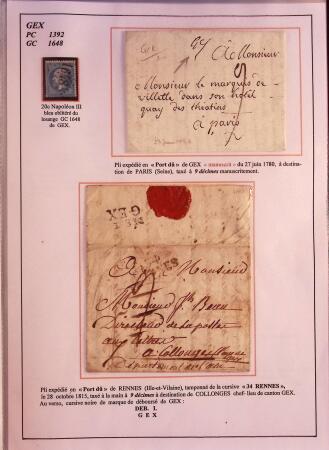 GEX
PC 1392
GC 1648
20c Napoléon III
bleu oblitéré du
losange GC 1648
de GEX.
à Monsieur
Monsieur le marquis de
villette dans son hotel
quay des théatins
à paris
Pli expédié en « Port dû » de GEX « manuscrit » du 27 juin 1780, à destina-
tion de PARIS (Seine), taxé à 9 décimes manuscritement.
DEB. I.
GEX
A Monsieur
Monsieur Jh Beau
Directeur de la poste
aux lettres
à Collonges
Département de l'ain
Pli expédié en « Port dû » de RENNES (Ille-et-Vilaine), tamponné de la cursive « 34 RENNES »,
le 28 octobre 1815, taxé à la main à 9 décimes à destination de COLLONGES chef-lieu de canton GEX.
Au verso, cursive noire de marque de déboursé de GEX :
DEB. I.
G E X